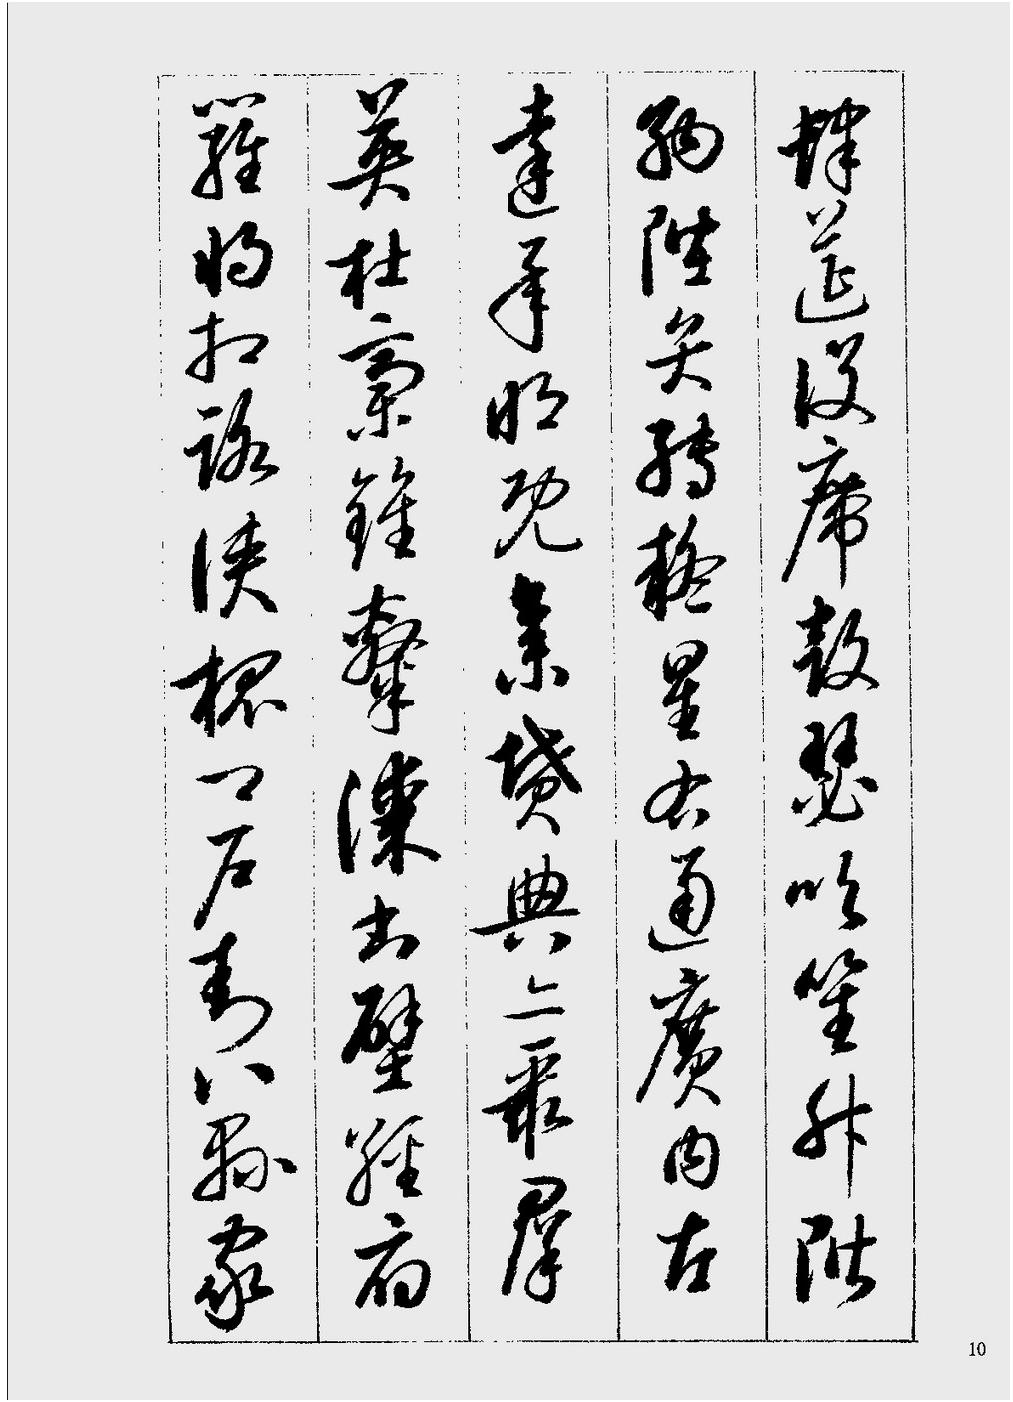 肆筵設席鼓瑟吹笙升階
納陛弁轉疑星右通廣內左
達承明既集墳典亦聚群
英杜稾鍾隸漆書壁經府
羅將相路俠槐卿戶封八縣家
10